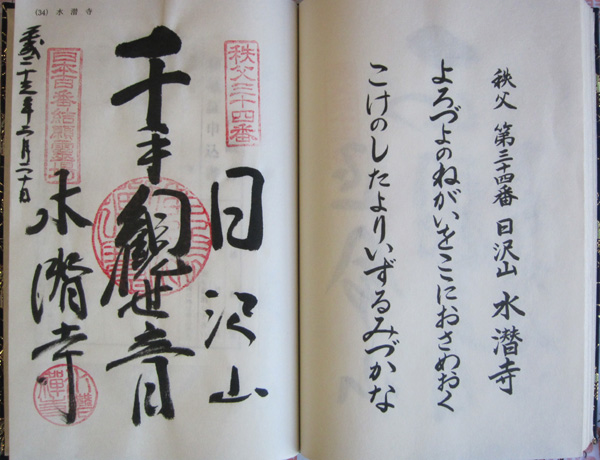 秩父 第三十四番 日沢山 水潜寺
よろづよのねがいをここにおさめおく
こけのしたよりいずるみづかな
(34) 水潜寺
秩父三十四番
日沢山
千手觀世音
日本百番結願霊場
水潜寺
平成二十三年 月二十日